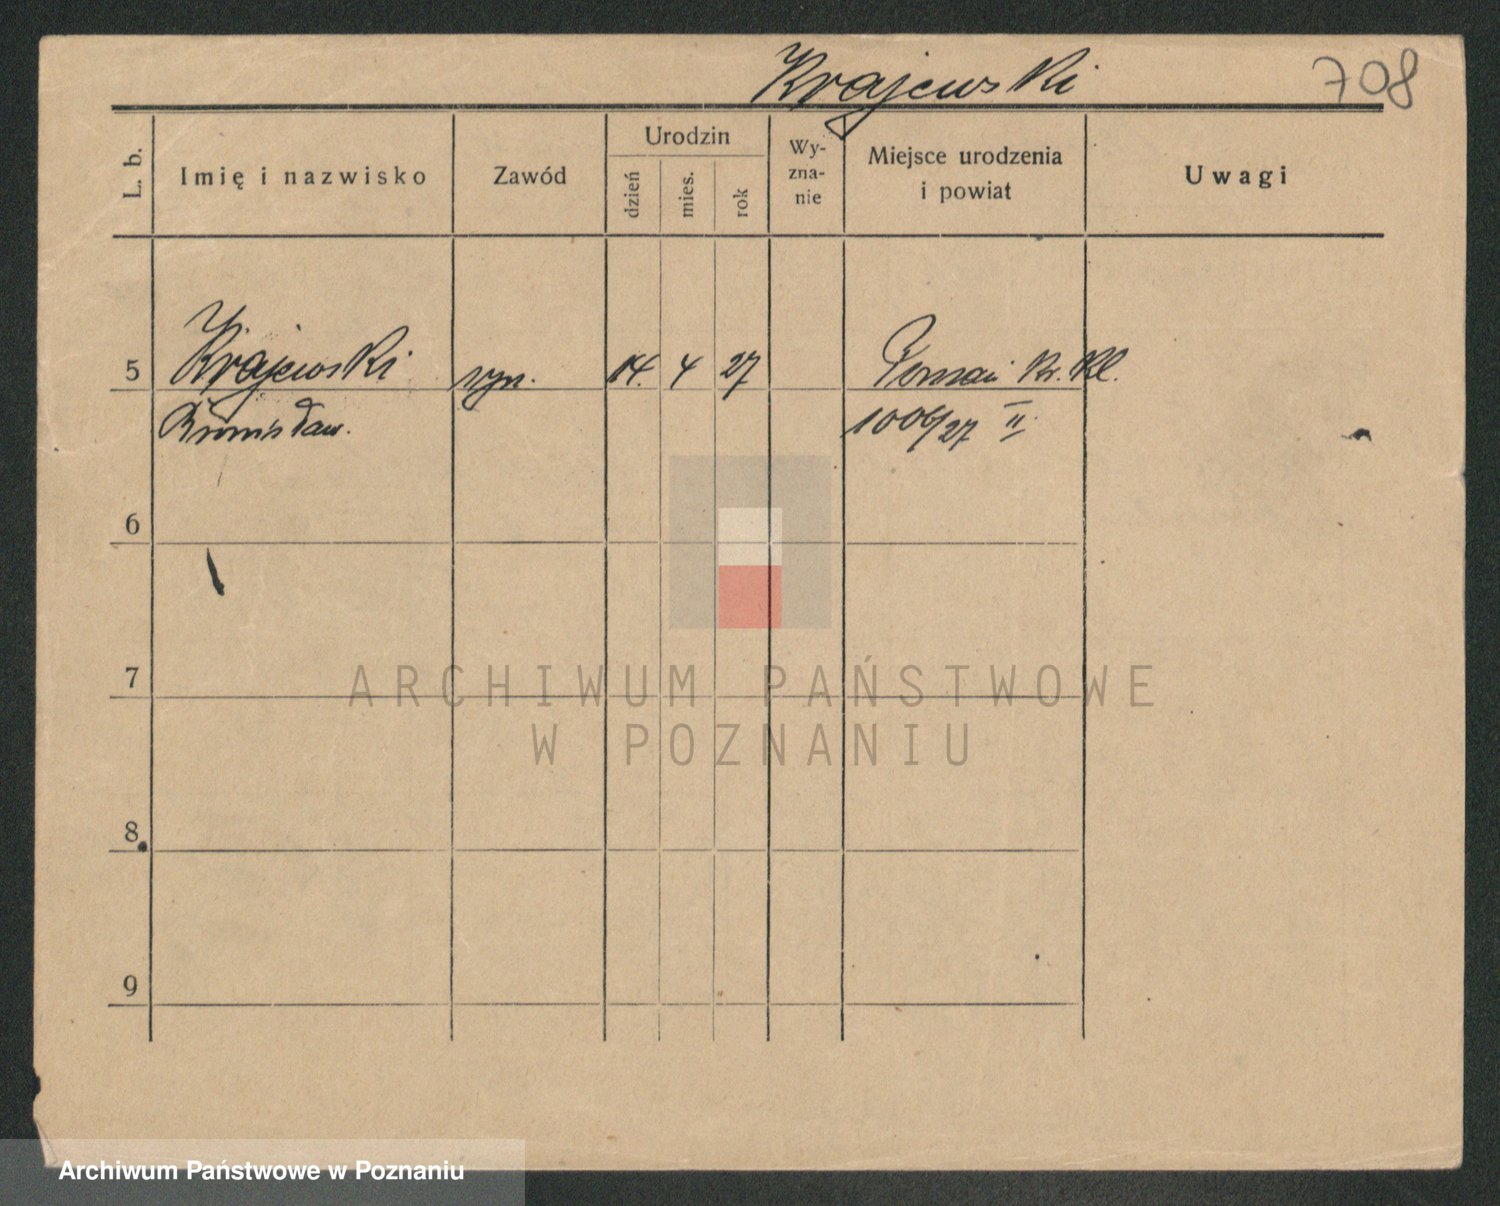 Krajewski
708
L. b. Imię i nazwisko Zawód Urodzin dzień mies. rok Wy-zna-nie Miejsce urodzenia i powiat Uwagi
5 Krajewski syn. 14. 4 27 Poznań
Bronisław. 1006/27 II
6
7
8
9
ARCHIWUM PAŃSTWOWE
W POZNANIU
Archiwum Państwowe w Poznaniu